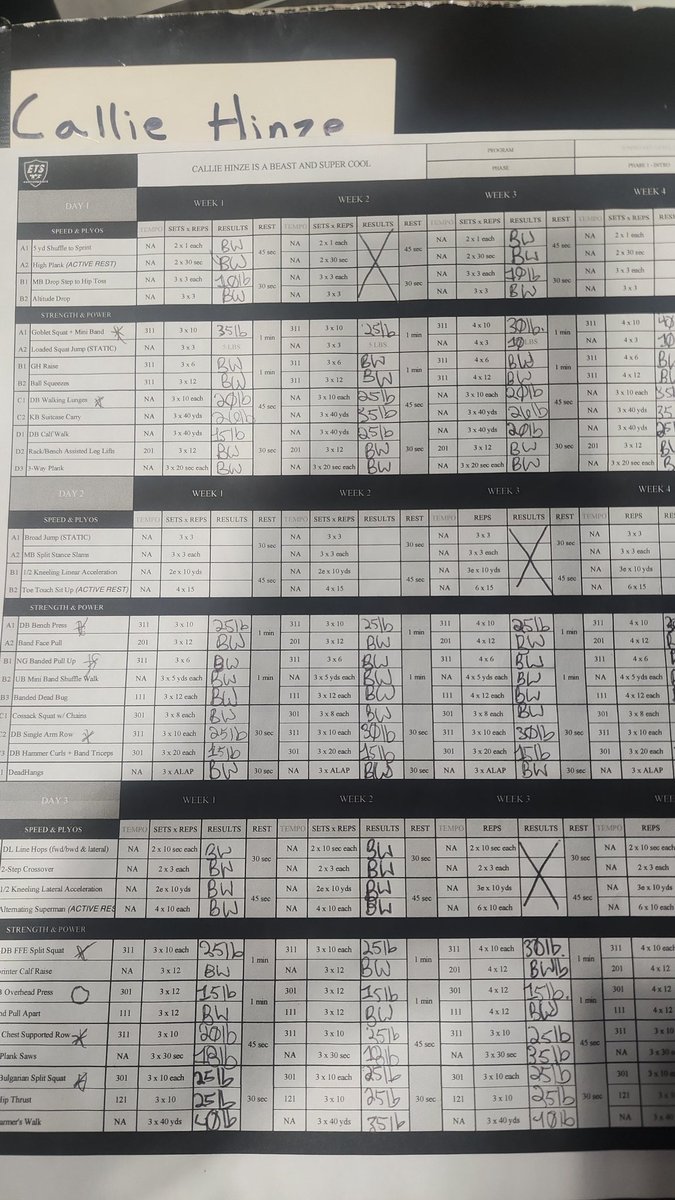 Callie Hinze
ETS
CALLIE HINZE IS A BEAST AND SUPER COOL PROGRAM
PHASE PHASE 1 - INTRO
DAY 1 WEEK 1 WEEK 2 WEEK 3 WEEK 4
SPEED & PLYOS TEMPO SETS x REPS RESULTS REST TEMPO SETS x REPS RESULTS REST TEMPO SETS x REPS RESULTS REST TEMPO SETS x REPS
A1 5 yd Shuffle to Sprint NA 2 x 1 each BW 45 sec NA 2 x 1 each 45 sec NA 2 x 1 each BW 45 sec NA 2 x 1 each
A2 High Plank (ACTIVE REST) NA 2 x 30 sec BW NA 2 x 30 sec NA 2 x 30 sec BW NA 2 x 30 sec
B1 MB Drop Step to Hip Toss NA 3 x 3 each 10lb 30 sec NA 3 x 3 each 30 sec NA 3 x 3 each 10lb 30 sec NA 3 x 3 each
B2 Altitude Drop NA 3 x 3 BW NA 3 x 3 NA 3 x 3 BW NA 3 x 3
STRENGTH & POWER
A1 Goblet Squat + Mini Band 311 3 x 10 35lb 1 min 311 3 x 10 25lb 1 min 311 4 x 10 30lb. 1 min 311 4 x 10
A2 Loaded Squat Jump (STATIC) NA 3 x 3 5 LBS NA 3 x 3 5 LBS NA 4 x 3 10 LBS NA 4 x 3 10
B1 GH Raise 311 3 x 6 BW 1 min 311 3 x 6 BW 1 min 311 4 x 6 BW 1 min 311 4 x 6
B2 Ball Squeezes 311 3 x 12 BW 311 3 x 12 BW 311 4 x 12 BW 311 4 x 12
C1 DB Walking Lunges NA 3 x 10 each 20lb 45 sec NA 3 x 10 each 25lb 45 sec NA 3 x 10 each 20lb 45 sec NA 3 x 10 each 35
C2 KB Suitcase Carry NA 3 x 40 yds 26lb NA 3 x 40 yds 35lb NA 3 x 40 yds 26lb NA 3 x 40 yds 35
D1 DB Calf Walk NA 3 x 40 yds 15lb 30 sec NA 3 x 40 yds 25lb 30 sec NA 3 x 40 yds 20lb 30 sec NA 3 x 40 yds 25
D2 Rack/Bench Assisted Leg Lifts 201 3 x 12 BW 201 3 x 12 BW 201 3 x 12 BW 201 3 x 12
D3 3-Way Plank NA 3 x 20 sec each BW NA 3 x 20 sec each BW NA 3 x 20 sec each BW NA 3 x 20 sec each
DAY 2 WEEK 1 WEEK 2 WEEK 3 WEEK 4
SPEED & PLYOS TEMPO SETS x REPS RESULTS REST TEMPO SETS x REPS RESULTS REST TEMPO REPS RESULTS REST TEMPO SETS x REPS
A1 Broad Jump (STATIC) NA 3 x 3 30 sec NA 3 x 3 30 sec NA 3 x 3 30 sec NA 3 x 3
A2 MB Split Stance Slams NA 3 x 3 each NA 3 x 3 each NA 3 x 3 each NA 3 x 3 each
B1 1/2 Kneeling Linear Acceleration NA 2e x 10 yds 45 sec NA 2e x 10 yds 45 sec NA 3e x 10 yds 45 sec NA 3e x 10 yds
B2 Toe Touch Sit Up (ACTIVE REST) NA 4 x 15 NA 4 x 15 NA 6 x 15 NA 6 x 15
STRENGTH & POWER
A1 DB Bench Press 311 3 x 10 25lb 1 min 311 3 x 10 25lb 1 min 311 4 x 10 25lb 1 min 311 4 x 10
A2 Band Face Pull 201 3 x 12 BW 201 3 x 12 BW 201 4 x 12 BW 201 4 x 12
B1 NG Banded Pull Up 311 3 x 6 BW 1 min 311 3 x 6 BW 1 min 311 4 x 6 BW 1 min 311 4 x 6
B2 UB Mini Band Shuffle Walk NA 3 x 5 yds each BW NA 3 x 5 yds each BW NA 4 x 5 yds each BW NA 4 x 5 yds each
B3 Banded Dead Bug 111 3 x 12 each BW 111 3 x 12 each BW 111 4 x 12 each BW 111 4 x 12 each
C1 Cossack Squat w/ Chains 301 3 x 8 each BW 30 sec 301 3 x 8 each BW 30 sec 301 3 x 8 each BW 30 sec 301 3 x 8 each
C2 DB Single Arm Row 311 3 x 10 each 25lb 311 3 x 10 each 30lb 311 3 x 10 each 30lb 311 3 x 10 each
3 DB Hammer Curls + Band Triceps 301 3 x 20 each 15lb 301 3 x 20 each 15lb 301 3 x 20 each 15lb 301 3 x 20 each
1 DeadHangs NA 3 x ALAP BW 30 sec NA 3 x ALAP BW 30 sec NA 3 x ALAP BW 30 sec NA 3 x ALAP
DAY 3 WEEK 1 WEEK 2 WEEK 3 WEE
SPEED & PLYOS TEMPO SETS x REPS RESULTS REST TEMPO SETS x REPS RESULTS REST TEMPO REPS RESULTS REST TEMPO REPS
DL Line Hops (fwd/bwd & lateral) NA 2 x 10 sec each BW 30 sec NA 2 x 10 sec each BW 30 sec NA 2 x 10 sec each 30 sec NA 2 x 10 sec each
2-Step Crossover NA 2 x 3 each BW NA 2 x 3 each BW NA 2 x 3 each NA 2 x 3 each
1/2 Kneeling Lateral Acceleration NA 2e x 10 yds BW 45 sec NA 2e x 10 yds BW 45 sec NA 3e x 10 yds 45 sec NA 3e x 10 yds
Alternating Superman (ACTIVE RES NA 4 x 10 each BW NA 4 x 10 each BW NA 6 x 10 each NA 6 x 10 each
STRENGTH & POWER
DB FFE Split Squat 311 3 x 10 each 25lb 1 min 311 3 x 10 each 25lb 1 min 311 4 x 10 each 30lb. 1 min 311 4 x 10 each
rinter Calf Raise NA 3 x 12 BW NA 3 x 12 BW 201 4 x 12 BWlb 201 4 x 12
B Overhead Press 301 3 x 12 15lb 1 min 301 3 x 12 15lb 1 min 301 4 x 12 15lb. 1 min 301 4 x 12
nd Pull Apart 111 3 x 12 BW 111 3 x 12 BW 111 4 x 12 BW 111 4 x 12
Chest Supported Row 311 3 x 10 20lb 45 sec 311 3 x 10 25lb 45 sec 311 3 x 10 25lb 45 sec 311 3 x 10
Plank Saws NA 3 x 30 sec 18lb NA 3 x 30 sec 18lb NA 3 x 30 sec 35lb NA 3 x 30 s
Bulgarian Split Squat 301 3 x 10 each 25lb 30 sec 301 3 x 10 each 25lb 30 sec 301 3 x 10 each 25lb 30 sec 301 3 x 10 e
Hip Thrust 121 3 x 10 25lb 121 3 x 10 25lb 121 3 x 10 25lb 121 3 x
armer's Walk NA 3 x 40 yds 40lb NA 3 x 40 yds 35lb NA 3 x 40 yds 40lb NA 3 x 40